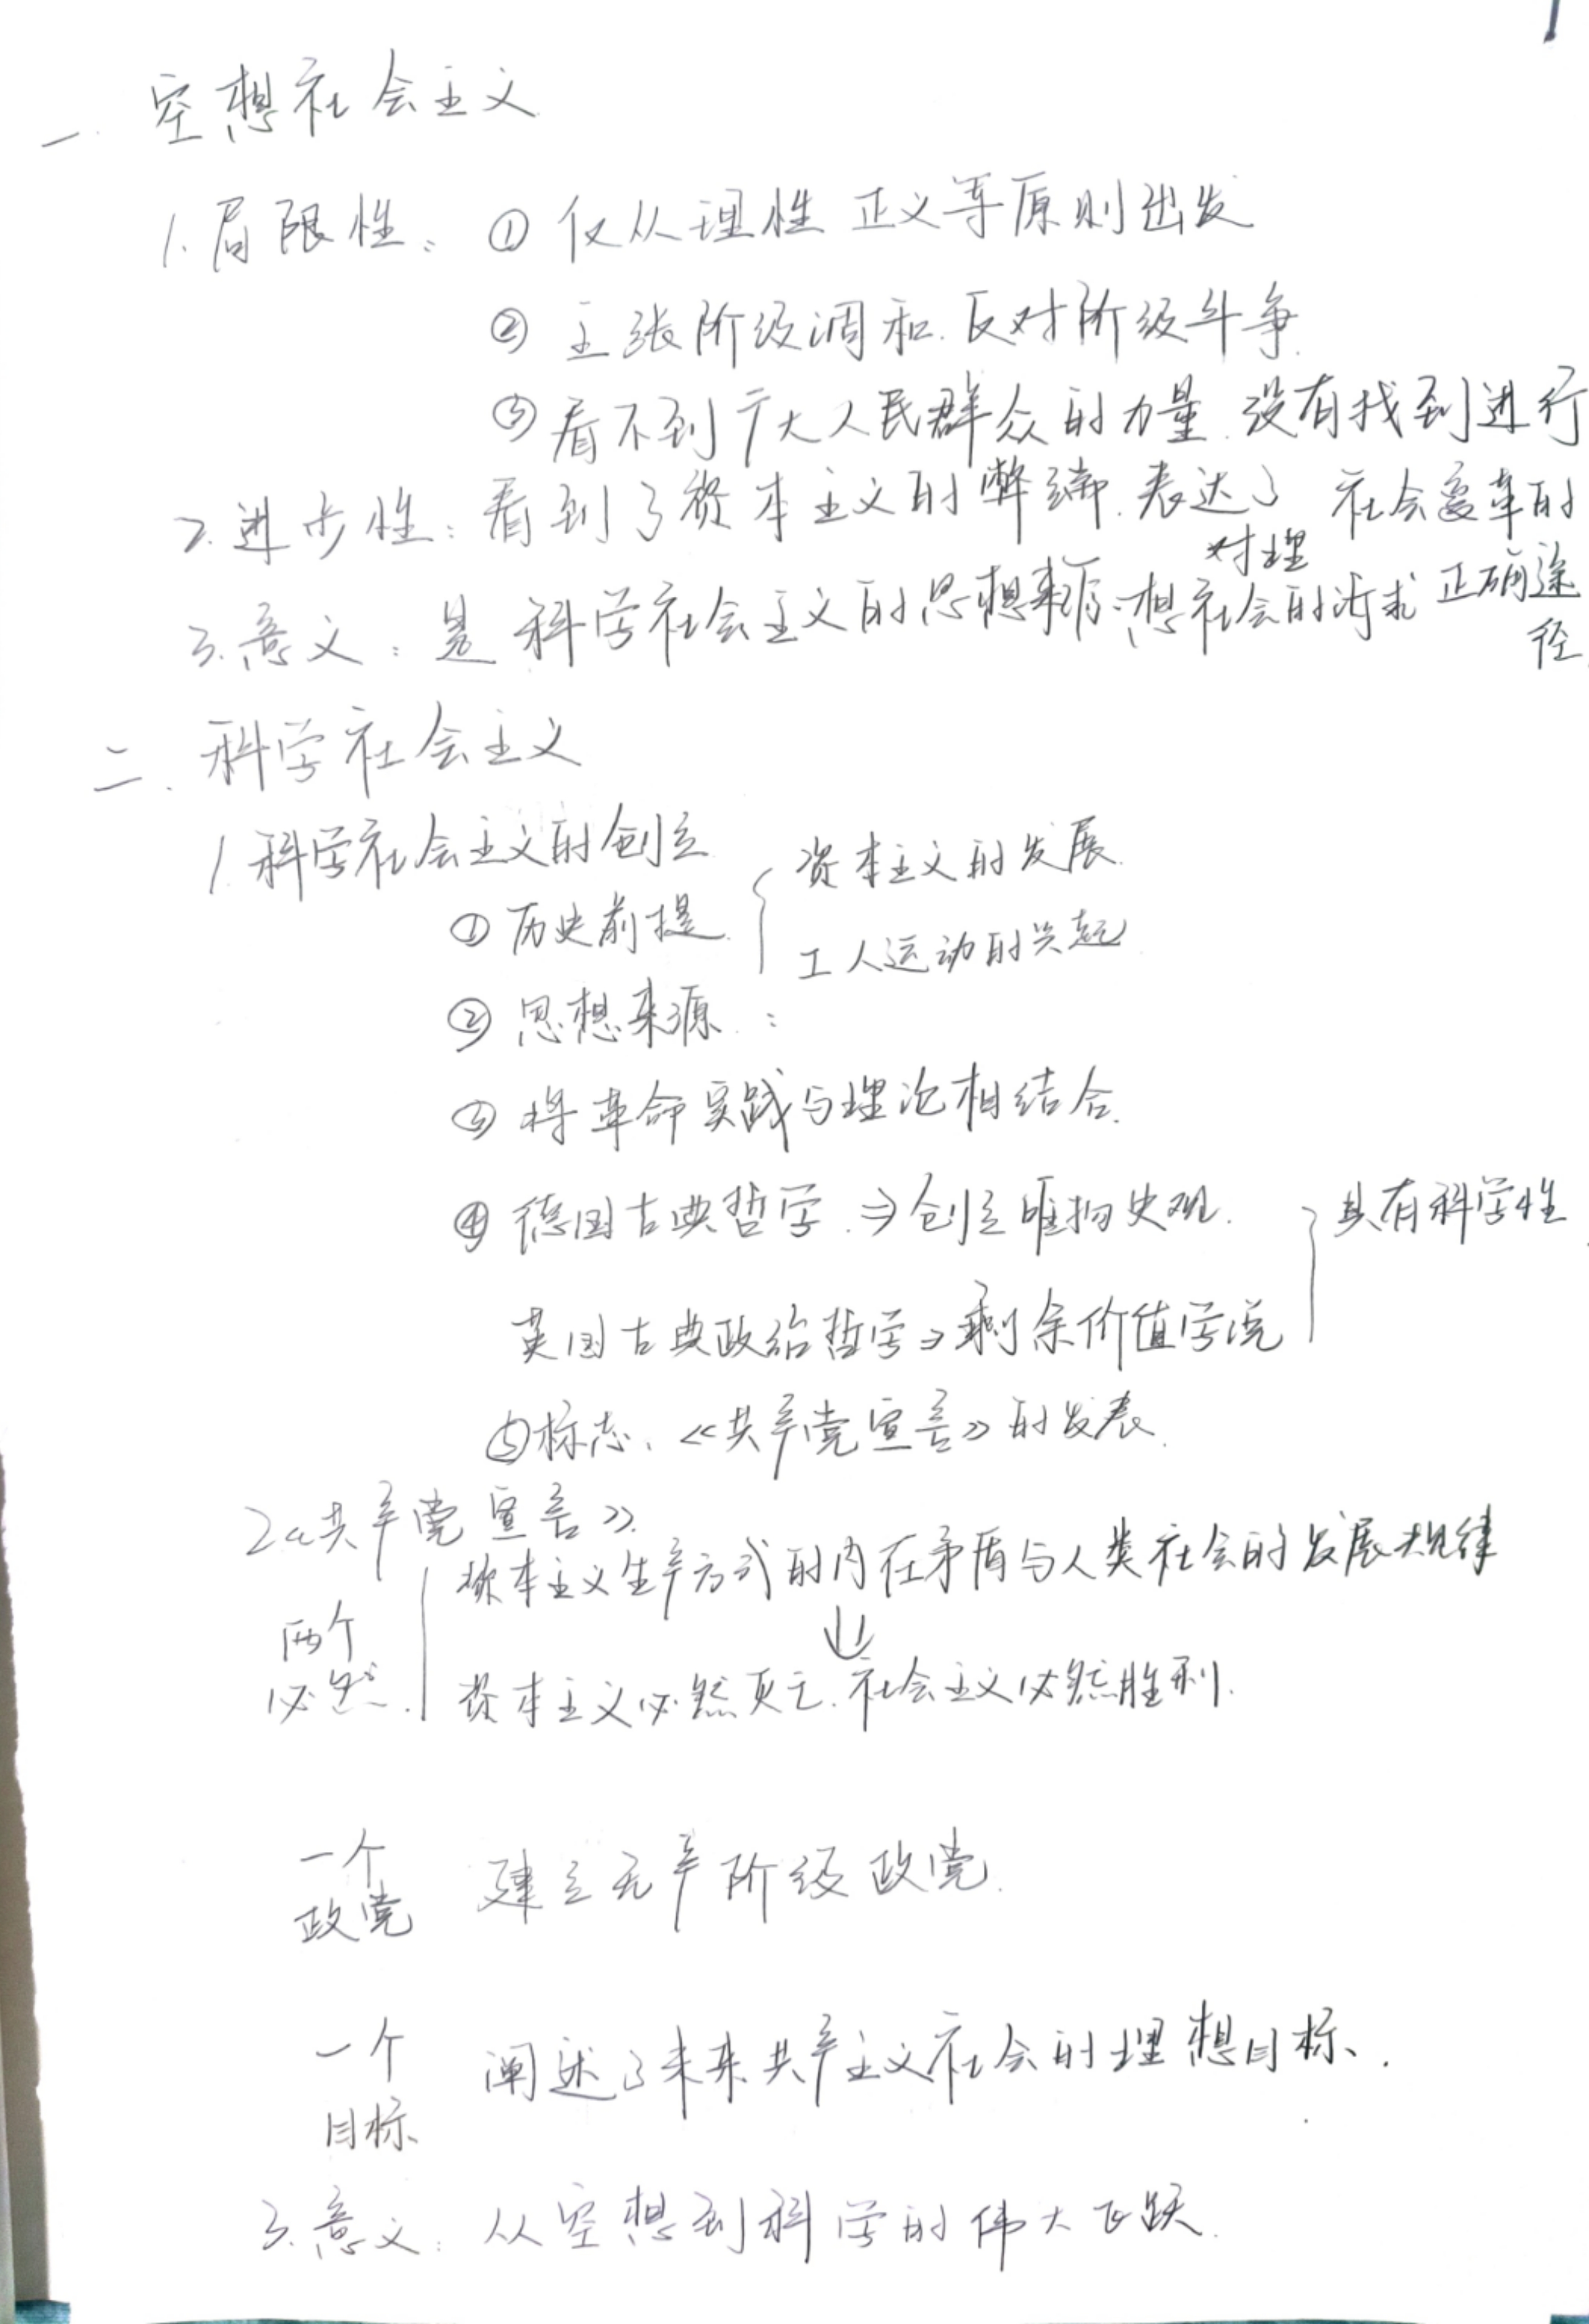 一. 空想社会主义.
1. 局限性: ① 仅从理性 正义等原则出发
② 主张阶级调和. 反对阶级斗争.
③ 看不到广大人民群众的力量. 没有找到进行
社会变革的
正确途
径.
2. 进步性: 看到了资本主义的弊端. 表达了
对理
想社会的诉求
3. 意义: 是科学社会主义的思想来源.
二. 科学社会主义
1. 科学社会主义的创立
① 历史前提. { 资本主义的发展.
工人运动的兴起
② 思想来源:
③ 将革命实践与理论相结合.
④ 德国古典哲学.⇒创立唯物史观. } 具有科学性
英国古典政治哲学⇒剩余价值学说
⑤标志、《共产党宣言》的发表.
2《共产党宣言》.
两个
必然. 资本主义生产方式的内在矛盾与人类社会的发展规律
↓
资本主义必然灭亡. 社会主义必然胜利.
一个
政党 建立无产阶级政党.
一个
目标 阐述了未来共产主义社会的理想目标.
3. 意义: 从空想到科学的伟大飞跃.